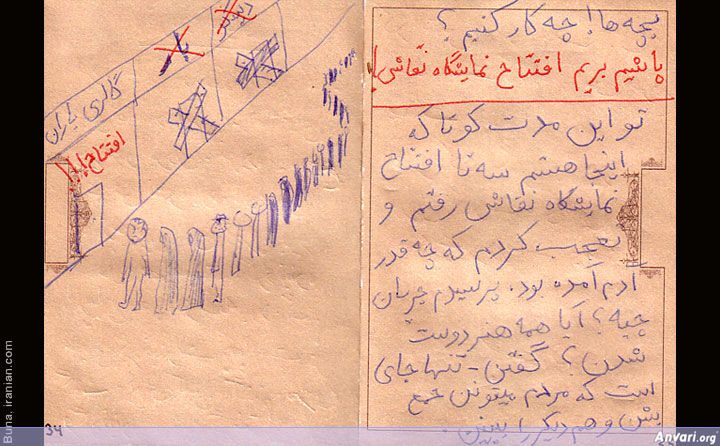 بچه ها! چه کار کنیم؟
پاشیم بریم افتتاح نمایشگاه نقاشی!
تو این مدت کوتاه که
اینجا هستم سه تا افتتاح
نمایشگاه نقاشی رفتم و
تعجب کردم که چه قدر
ادم آمده بود. پرسیدم جریان
چیه؟ آیا همه هنر دوست
شدن؟ گفتن - تنها جای
است که مردم میتونن جمع
بشن و هم دیگر را ببینن
گالری ایران
بار
دیسکو
افتتاح!!!
34
Buna. iranian.com
Anvari.org